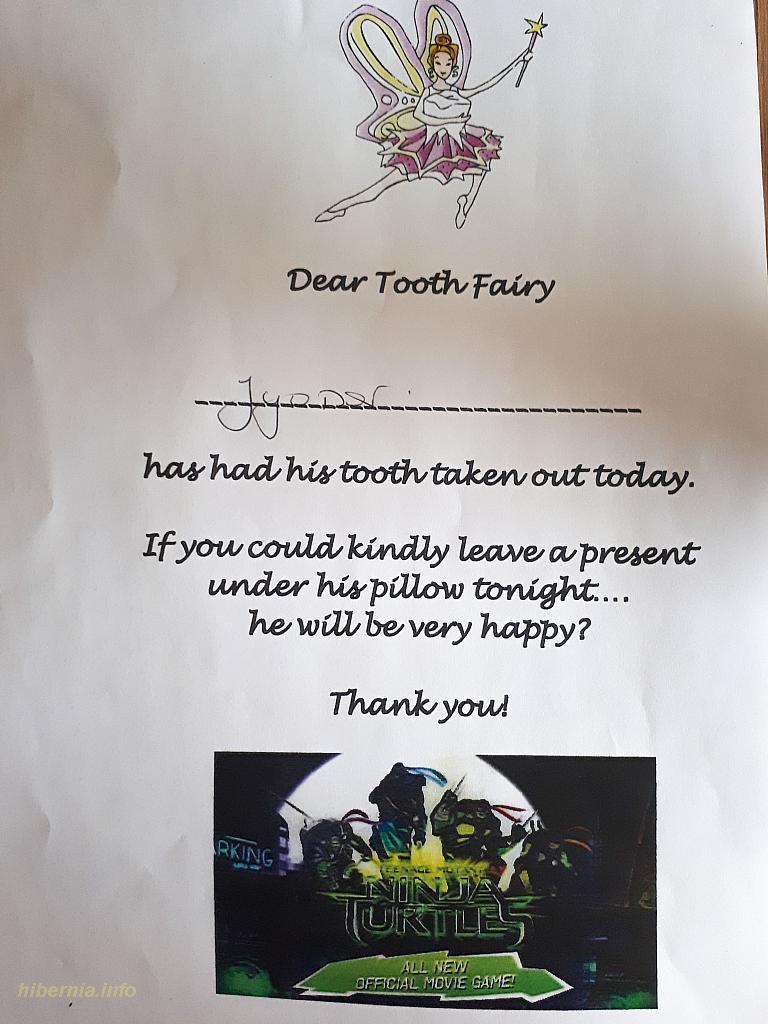 Dear Tooth Fairy
has had his tooth taken out today.
If you could kindly leave a present
under his pillow tonight....
he will be very happy?
Thank you!
RKING
TEENAGE MUTANT
NINJA
TURTLES
ALL NEW
OFFICIAL MOVIE GAME!
hibernia.info